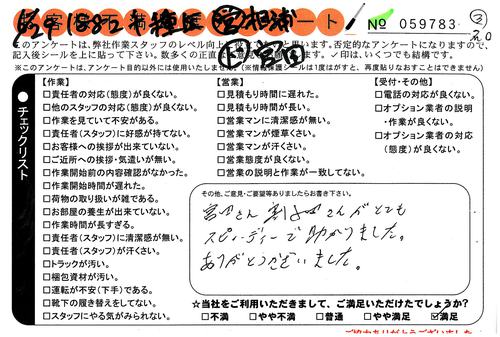 № 059783
このアンケートは、弊社作業スタッフのレベル向上
と思います。否定的なアンケートになりますので、
記入後シールを上に貼って下さい。多数くの正直
✓印は、いくつでも結構です。
※このアンケートは、アンケート目的以外には使用いたしません。(※情報保護シールは1度はがすと、再度貼りなおすことはできません)
●チェックリスト
【作業】
□責任者の対応(態度)が良くない。
□他のスタッフの対応(態度)が良くない。
□作業を見ていて不安がある。
□責任者(スタッフ)に好感が持てない。
□お客様への挨拶が出来ていない。
□ご近所への挨拶・気遣いが無い。
□作業開始前の内容確認がなかった。
□作業開始時間が遅れた。
□荷物の取り扱いが雑である。
□お部屋の養生が出来ていない。
□作業時間が長すぎる。
□責任者(スタッフ)に清潔感が無い。
□責任者(スタッフ)が汗くさい。
□トラックが汚い。
□梱包資材が汚い。
□運転が不安(下手)である。
□靴下の履き替えをしてない。
□スタッフにやる気がみられない。
【営業】
□見積もり時間に遅れた。
□見積もり時間が長い。
□営業マンに清潔感が無い。
□営業マンが煙草くさい。
□営業マンが汗くさい。
□営業態度が良くない。
□営業の説明と作業が一致してない。
【受付・その他】
□電話の対応が良くない。
□オプション業者の説明
・作業が良くない。
□オプション業者の対応
(態度)が良くない。
その他、ご意見・ご要望等ありましたらお書き下さい。
さんがとても
スピーディーで助かりました。
ありがとうございました。
☆当社をご利用いただきまして、ご満足いただけたでしょうか?
□不満 □やや不満 □普通 □やや満足 ☑満足
ご協力ありがとうございました